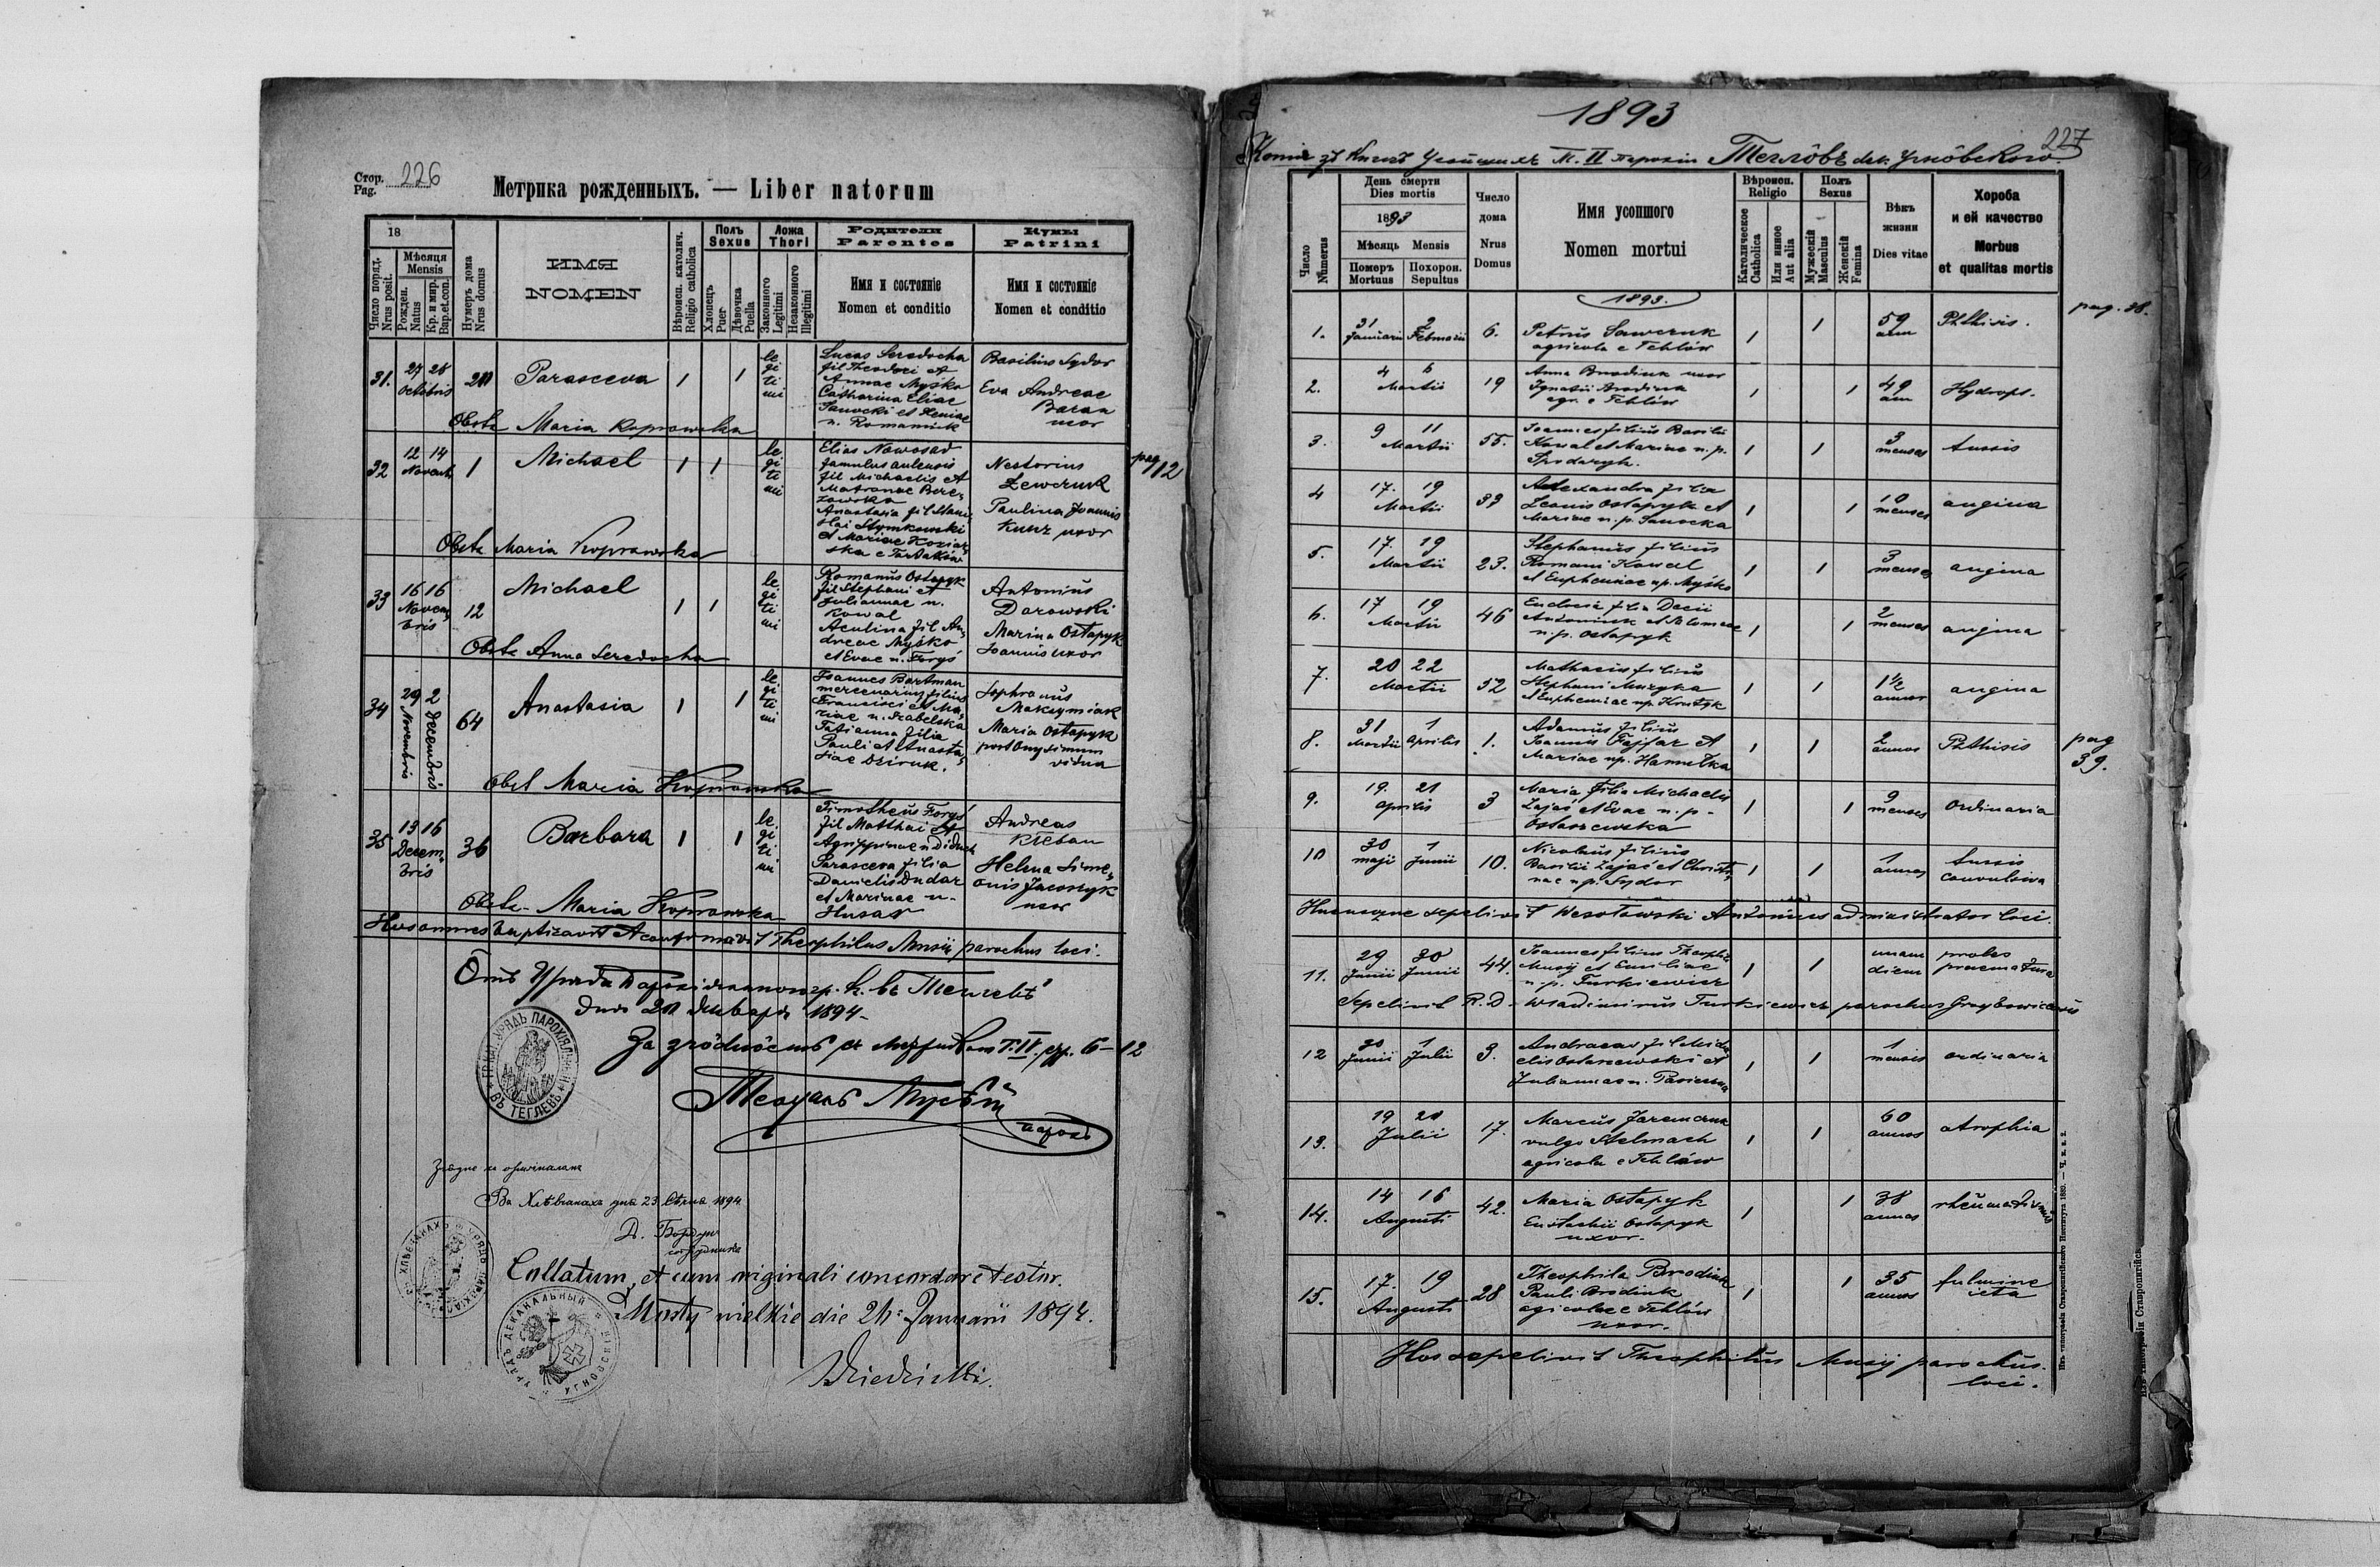 Стор.
Pag. 226
Метрика рожденныхъ. — Liber natorum
18
Число поряд.
Nrus posit.
Мѣсяця
Mensis
Рожден.
Natus
Кр. и мир.
Bap.et.con.
Нумеръ дома
Nrus domus
ИМЯ
NOMEN
Вѣроисп. католич.
Religio catholica
Полъ
Sexus
Хлопецъ
Puer
Дѣвочка
Puella
Ложа
Thori
Законного
Legitimi
Незаконного
Illegitimi
Родители
Parentes
Имя и состояніе
Nomen et conditio
Кумы
Patrini
Имя и состояніе
Nomen et conditio
31. 27 28
Octobris
20 Parasceva 1 1
le
gi
ti
mi
Lucas Seredocha
fil Theodori et
Annae Myśko
Catharina Eliae
Sanocki et Xeniae
n. Romaniuk
Basilius Sydor
Eva Andreae
Baran
uxor
Obste Maria Koprowska
32 12 14
Novemb
1 Michael 1 1
le
gi
ti
mi
Elias Nowosad
famulus aulensis
fil Michaelis et
Matronae Bere-
zowska
Anastasia fil
et Mariae
Nestorius
Lewczuk
Paulina Joannis
Kunz uxor
pag 12
Obste Maria Koprowska
33 16 16
Novem
bris
12 Michael 1 1
le
gi
ti
mi
Romanus Ostapyk
fil Stephani et
Juliannae n.
Kowal
Aculina fil An-
dreae Myśko
et Evae n. Foryś
Antonius
Darowski
Marina Ostapyk
Joannis uxor
Obste Anna Seredocha
34 29 Novembris 2 Decembris
64 Anastasia 1 1
le
gi
ti
mi
Joannes Bartman
mercenarius filius
Francisci et Ma-
riae n. Grabelska
Tatianna filia
Pauli et Anasta-
siae Dziruk.
Sophronius
Maksymiak
Maria Ostapyk
post Onysimum
vidua
Obst Maria Koprowska
35 13 16
Decem
bris
36 Barbara 1 1
le
gi
ti
mi
Timotheus Foryś
fil Matthai et
Agrippinae n Diduch
Parasceva filia
Danielis Dudar
et Marinae n.
Husar
Andreas
Kleban
Helena Sime-
onis Jacosyk
uxor
Obste Maria Koprowska
Hos omnes baptizavit et confirmavit Theophilus Musij parochus loci.
Отъ Уряда Парохіяльного гр. к. въ Теглевѣ
дня 20 Январа 1894
За згôдность съ T. IV. стр. 6-12
Теофиль Мусѣй
парохъ
ГР. КАТ. УРЯДЪ ПАРОХІЯЛЬНЫЙ ВЪ ТЕГЛЕВѢ
Згôдне съ оригиналомъ
Въ Хлѣвчанахъ дня 23 Сѣчня 1894
сотрудникъ
Collatum, et cum originali concordare testor.
Mosty wielkie die 24. Januarii 1894.
1893
227
Копія зъ Книгъ Усопшихъ Т. II парохіи Теглôвъ dek. Угнôвского
Число
Numerus
День смерти
Dies mortis
1893
Мѣсяць Mensis
Померъ
Mortuus
Похорон.
Sepultus
Число
дома
Nrus
Domus
Имя усопшого
Nomen mortui
Вѣроисп.
Religio
Католическое
Catholica
Или инное
Aut alia
Полъ
Sexus
Мужескій
Masculus
Женскій
Femina
Вѣкъ
жизни
Dies vitae
Хороба
и ей качество
Morbus
et qualitas mortis
1893.
1. 31 Januarii 2 Februarii 6.
Petrus Sawczuk
agricola e Tehlów
1 1 59
ann
Phthisis.
pag. 38.
2. 4 6
Martii 19
Anna Brodiuk uxor
Ignatii Brodiuk
agr. e Tehlów
1 1 49
ann
Hydrops.
3. 9 11
Martii 55.
Joannes filius Basilii
Kowal et Mariae n. p.
Spodaryk.
1 1 3
menses
tussis
4 17. 19
Martii 33
Alexandra filia
Leonis Ostapyk et
Mariae n. p. Sanocka
1 1 10
menses
angina
5. 17. 19
Martii 23.
Stephanus filius
Romani Kowal
et Eupheniae np. Myśko
1 1 3
menses
angina
6. 17 19
Martii 46
Eudocia filia Decii
Antoniuk et Salomeae
n. p. Ostapyk
1 1 2
menses
angina
7. 20 22
Martii 52
Mathaeus filius
Stephani Muzyka
et Eupheniae np. Krutyk
1 1 1 1/2
annos
angina
8. 31 Martii 1 Aprilis 1.
Adamus filius
Joannis Fajfar et
Mariae np. Hamulka
1 1 2
annos
Phthisis
pag
39.
9. 19. 21
Aprilis 3
Maria filia Michaelis
Zając et Evae n. p.
Ostaszewska
1 1 9
menses
ordinaria
10 30 maji 1 Junii 10.
Nicolaus filius
Basilii Zając et Christi-
nae np. Sydor
1 1 1
annos
tussis
convulsiva
Hucusque sepelivit Wesołowski Antonius administrator loci.
11. 29 Junii 30 Junii 44.
Joannes filius Theophili
Musij et Emiliae
n. p. Turkiewicz
1 1 unam
diem
proles
praematura
Sepelivit R. D. Wladimirus Turkiewicz parochus Grzybowicensis
12 30 Junii 1 Julii 3.
Andreas fil Micha-
elis Ostaszewski et
Juliannae n.
1 1 1
mensis
ordinaria
13. 19 20
Julii 17.
Marcus Jaremczuk
vulgo Stelmach
agricola e Tehlów
1 1 60
annos
atrophia
14. 14 16
Augusti 42.
Maria Ostapyk
Eustachii Ostapyk
uxor.
1 1 38
annos
rheumatismus
15. 17. 19
Augusti 28
Theophila Brodiuk
Pauli Brodiuk
agricolae e Tehlów
uxor.
1 1 35
annos
fulmine
icta
Hos sepelivit Theophilus Musij parochus
loci.
Изъ типографіи Ставропигійского Института 1889. — Ч. к. в. г.